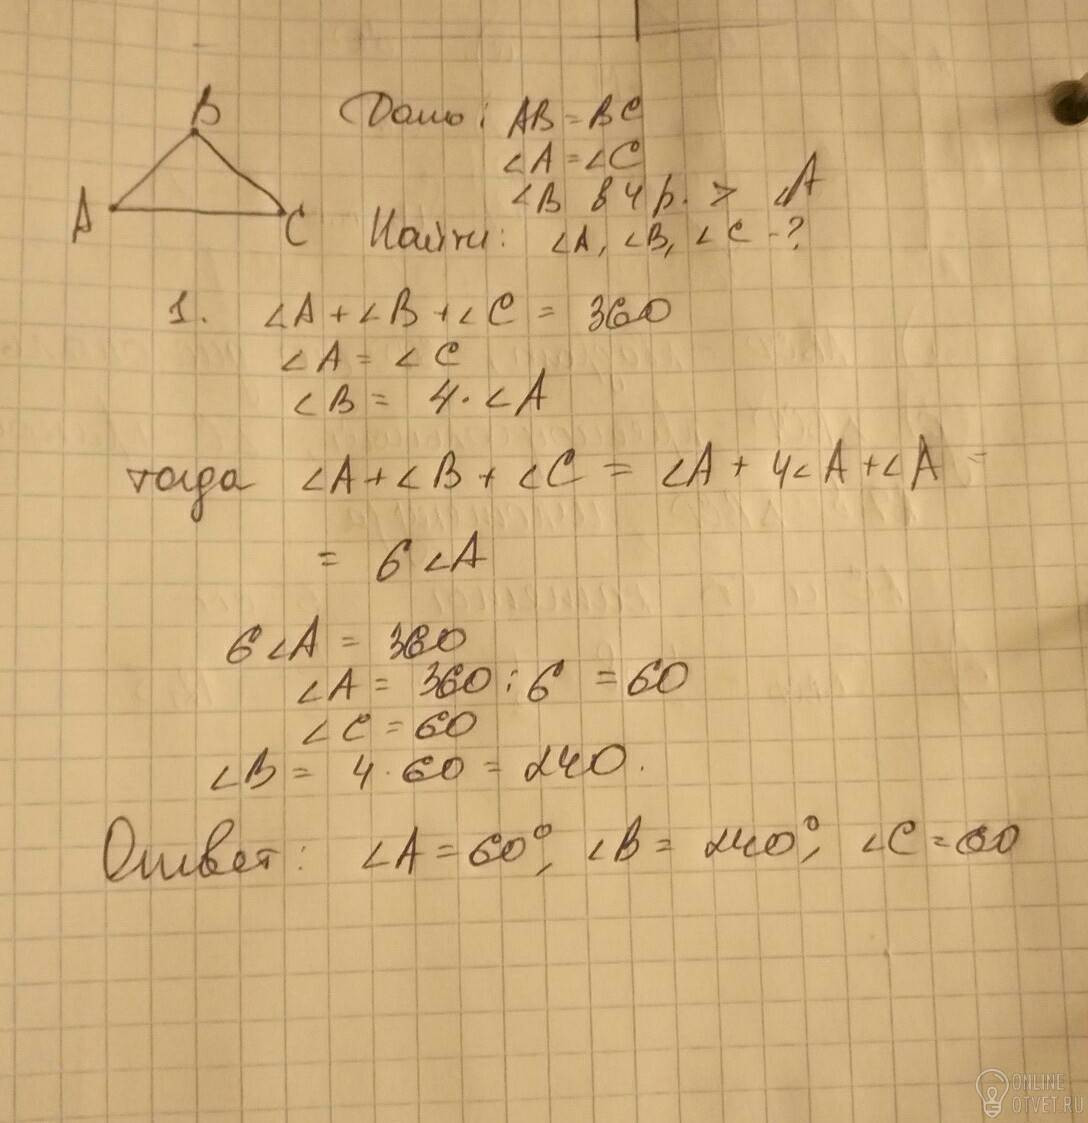 B
A
C
Дано: AB = BC
∠A = ∠C
∠B в 4 р. > ∠A
Найти: ∠A, ∠B, ∠C - ?
1. ∠A + ∠B + ∠C = 360
∠A = ∠C
∠B = 4 · ∠A
тогда ∠A + ∠B + ∠C = ∠A + 4∠A + ∠A =
= 6∠A
6∠A = 360
∠A = 360 : 6 = 60
∠C = 60
∠B = 4 · 60 = 240.
Ответ: ∠A = 60°, ∠B = 240°, ∠C = 60
ONLINE
OTVET.RU